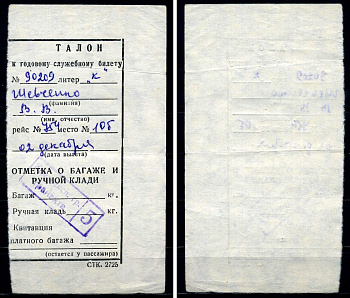 ТАЛОН
к годовому служебному билету
№ 90209 литер "К"
Шевченко
(фамилия)
В. В.
(имя, отчество)
рейс № 754 место № 10Б
02 декабря
(дата вылета)
ОТМЕТКА О БАГАЖЕ И
РУЧНОЙ КЛАДИ
Багаж кг.
Ручная кладь кг.
Квитанция
платного багажа
(остается у пассажира)
СТК. 2725
5